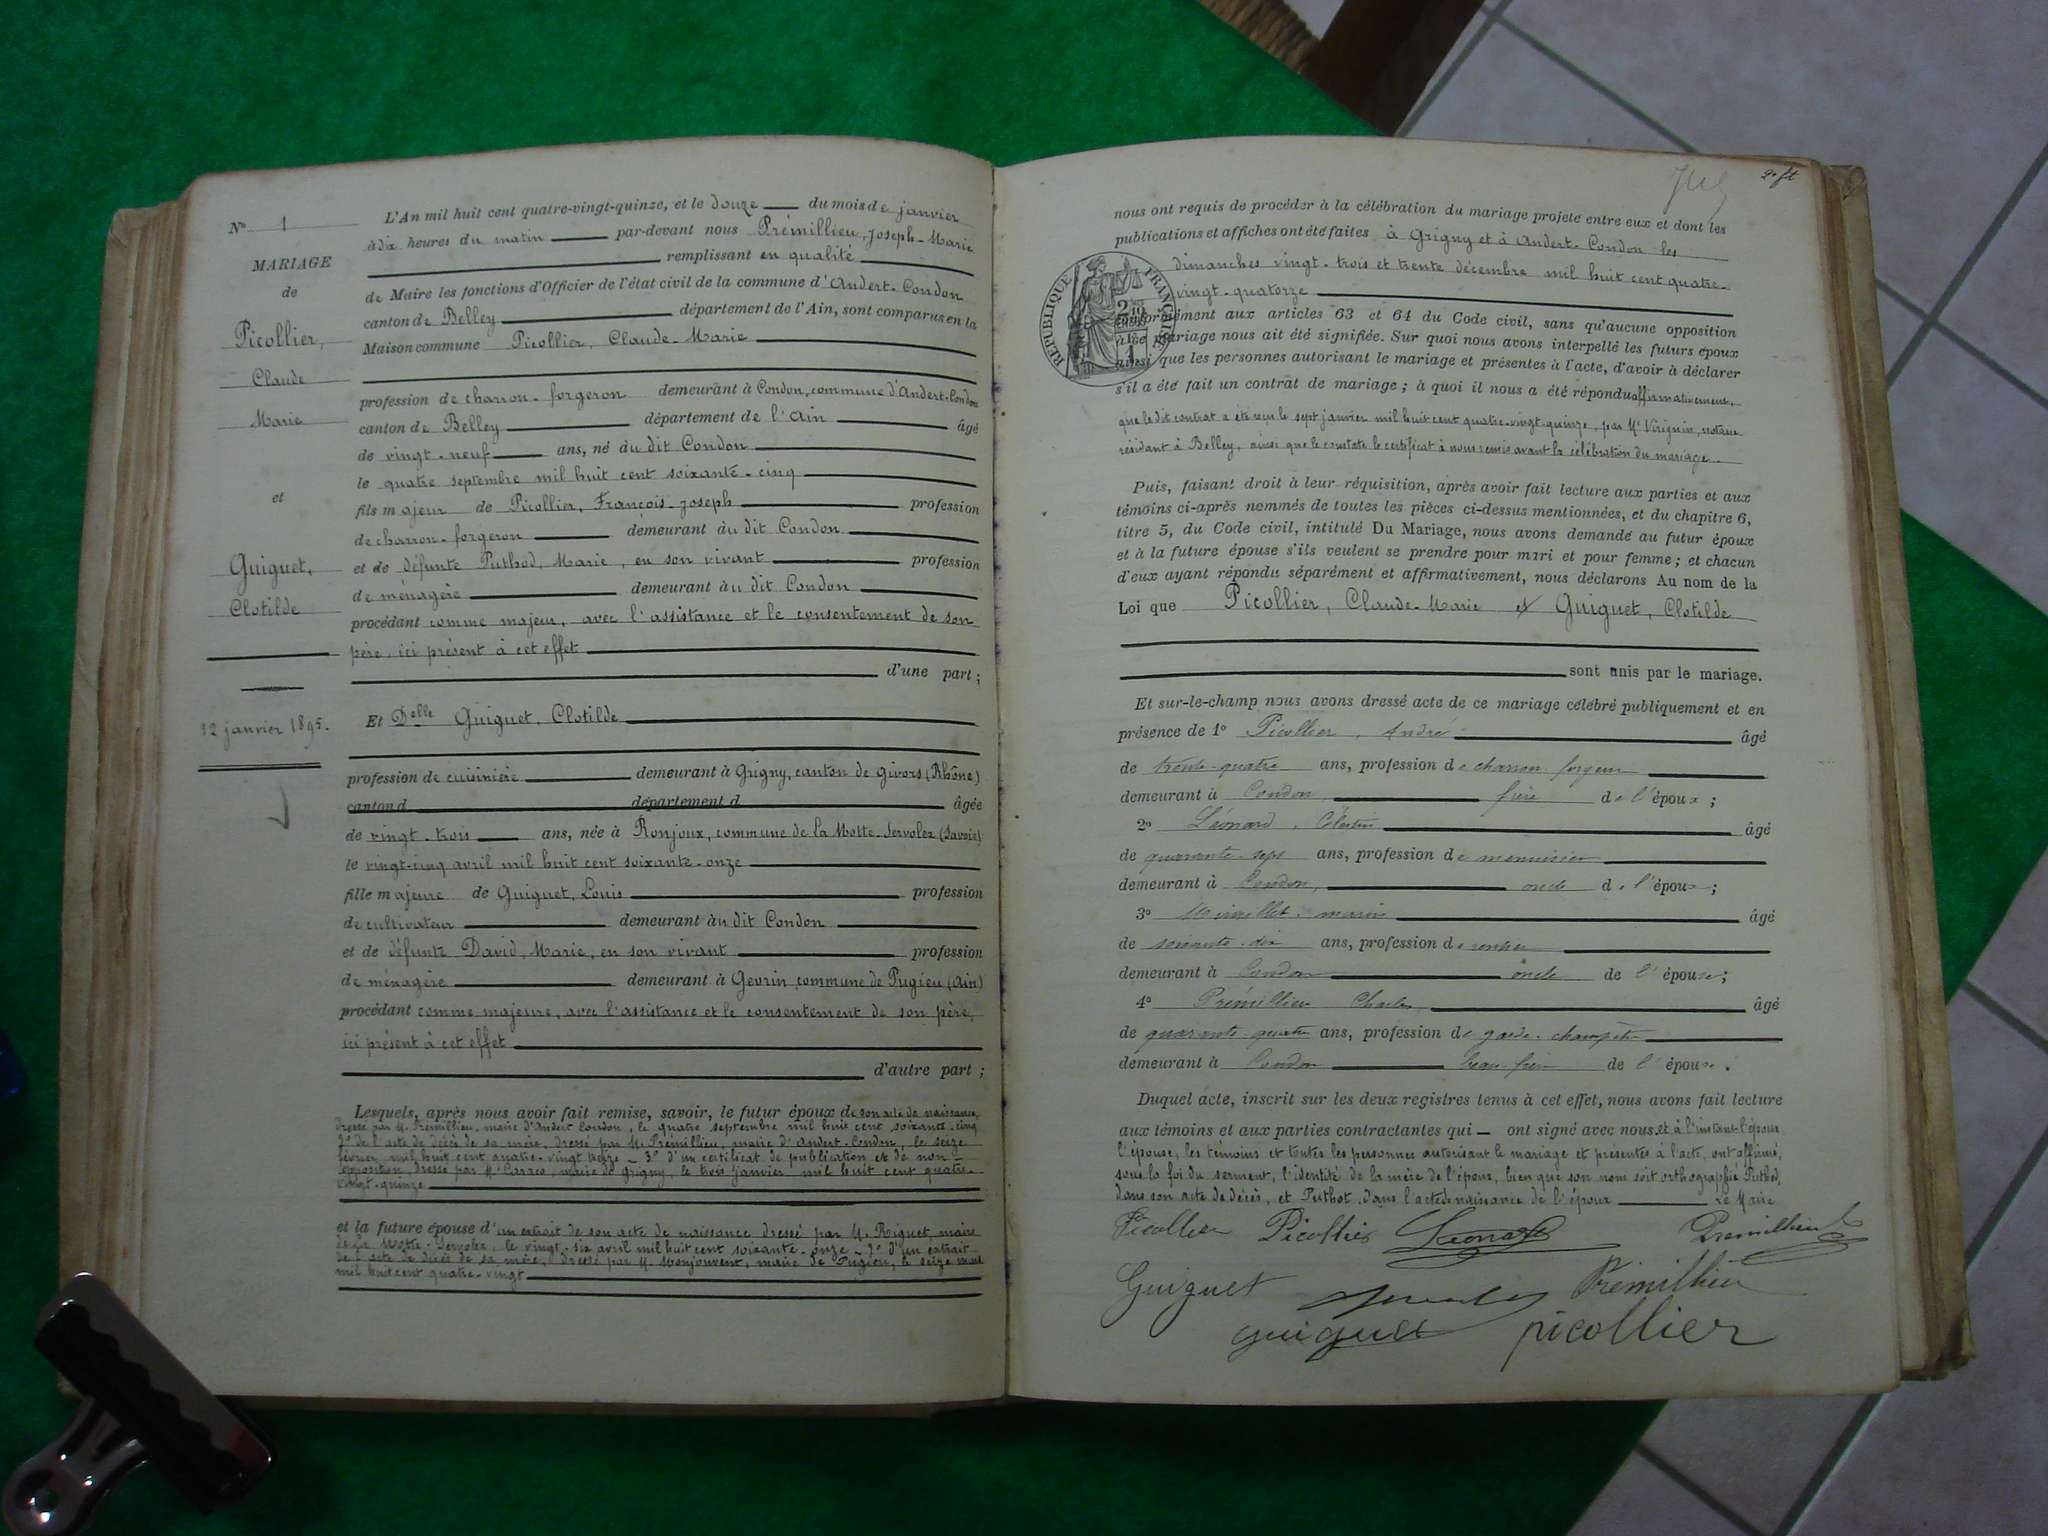 N° 1
MARIAGE
de
Picollier,
Claude
Marie
et
Guiguet,
Clotilde
12 janvier 1895.
L'An mil huit cent quatre-vingt-quinze, et le douze du mois de janvier
à dix heures du matin par-devant nous Prémillieu, Joseph-Marie
remplissant en qualité
de Maire les fonctions d'Officier de l'état civil de la commune d'Andert-Condon
canton de Belley département de l'Ain, sont comparus en la
Maison commune Picollier, Claude-Marie
profession de charron-forgeron demeurant à Condon, commune d'Andert-Condon
canton de Belley département de l'Ain âgé
de vingt-neuf ans, né au dit Condon
le quatre septembre mil huit cent soixante-cinq
fils majeur de Picollier, François-Joseph profession
de charron-forgeron demeurant au dit Condon
et de défunte Puthod, Marie, en son vivant profession
de ménagère demeurant au dit Condon
procédant comme majeur, avec l'assistance et le consentement de son
père, ici présent à cet effet
d'une part;
Et Delle Guiguet, Clotilde
profession de cuisinière demeurant à Grigny, canton de Givors (Rhône)
canton d département d âgée
de vingt-trois ans, née à Ronjoux, commune de la Motte-Servolex (Savoie)
le vingt-cinq avril mil huit cent soixante-onze
fille majeure de Guiguet, Louis profession
de cultivateur demeurant au dit Condon
et de défunte David, Marie, en son vivant profession
de ménagère demeurant à Gevrin, commune de Pugieu (Ain)
procédant comme majeure, avec l'assistance et le consentement de son père,
ici présent à cet effet
d'autre part;
Lesquels, après nous avoir fait remise, savoir, le futur époux de son acte de naissance,
dressé par M. Prémillieu, maire d'Andert-Condon, le quatre septembre mil huit cent soixante-cinq
2° de l'acte de décès de sa mère, dressé par M. Prémillieu, maire d'Andert-Condon, le seize
février mil huit cent quatre-vingt treize - 3° d'un certificat de publication et de non-
opposition, dressé par M. maire de Grigny, le trois janvier mil huit cent quatre-
vingt-quinze
et la future épouse d'un extrait de son acte de naissance dressé par M. Riguet, maire
de La Motte-Servolex, le vingt-six avril mil huit cent soixante-onze - 2° d'un extrait
de l'acte de décès de sa mère, dressé par M. maire de Pugieu, le seize
mil huit cent quatre-vingt
2e ft
nous ont requis de procéder à la célébration du mariage projeté entre eux et dont les
publications et affiches ont été faites à Grigny et à Andert-Condon les
dimanches vingt-trois et trente décembre mil huit cent quatre-
vingt-quatorze
REPUBLIQUE FRANÇAISE
conformément aux articles 63 et 64 du Code civil, sans qu'aucune opposition
à ce mariage nous ait été signifiée. Sur quoi nous avons interpellé les futurs époux
ainsi que les personnes autorisant le mariage et présentes à l'acte, d'avoir à déclarer
s'il a été fait un contrat de mariage; à quoi il nous a été répondu affirmativement,
que le dit contrat a été reçu le sept janvier mil huit cent quatre-vingt-quinze, par Me Virignin, notaire
résidant à Belley, ainsi que le constate le certificat à nous remis avant la célébration du mariage.
Puis, faisant droit à leur réquisition, après avoir fait lecture aux parties et aux
témoins ci-après nommés de toutes les pièces ci-dessus mentionnées, et du chapitre 6,
titre 5, du Code civil, intitulé Du Mariage, nous avons demandé au futur époux
et à la future épouse s'ils veulent se prendre pour mari et pour femme; et chacun
d'eux ayant répondu séparément et affirmativement, nous déclarons Au nom de la
Loi que Picollier, Claude-Marie et Guiguet, Clotilde
sont unis par le mariage.
Et sur-le-champ nous avons dressé acte de ce mariage célébré publiquement et en
présence de 1° Picollier, André âgé
de trente-quatre ans, profession de charron-forgeron
demeurant à Condon, frère de l'époux;
2° Léonard, Célestin âgé
de quarante-sept ans, profession de menuisier
demeurant à Condon, oncle de l'époux;
3° marin âgé
de soixante-dix ans, profession de rentier
demeurant à Condon oncle de l'épouse;
4° Prémillieu Charles, âgé
de quarante-quatre ans, profession de garde-champêtre
demeurant à Condon beau-frère de l'épouse.
Duquel acte, inscrit sur les deux registres tenus à cet effet, nous avons fait lecture
aux témoins et aux parties contractantes qui ont signé avec nous et à l'instant l'époux
l'épouse, les témoins et toutes les personnes autorisant le mariage et présentes à l'acte, ont affirmé,
sous la foi du serment, l'identité de la mère de l'époux, bien que son nom soit orthographié Puthod,
dans son acte de décès, et Puthot dans l'acte de naissance de l'époux Le Maire
Picollier Picollier Léonard Prémillieu
Guiguet Prémillieu
guiguet picollier